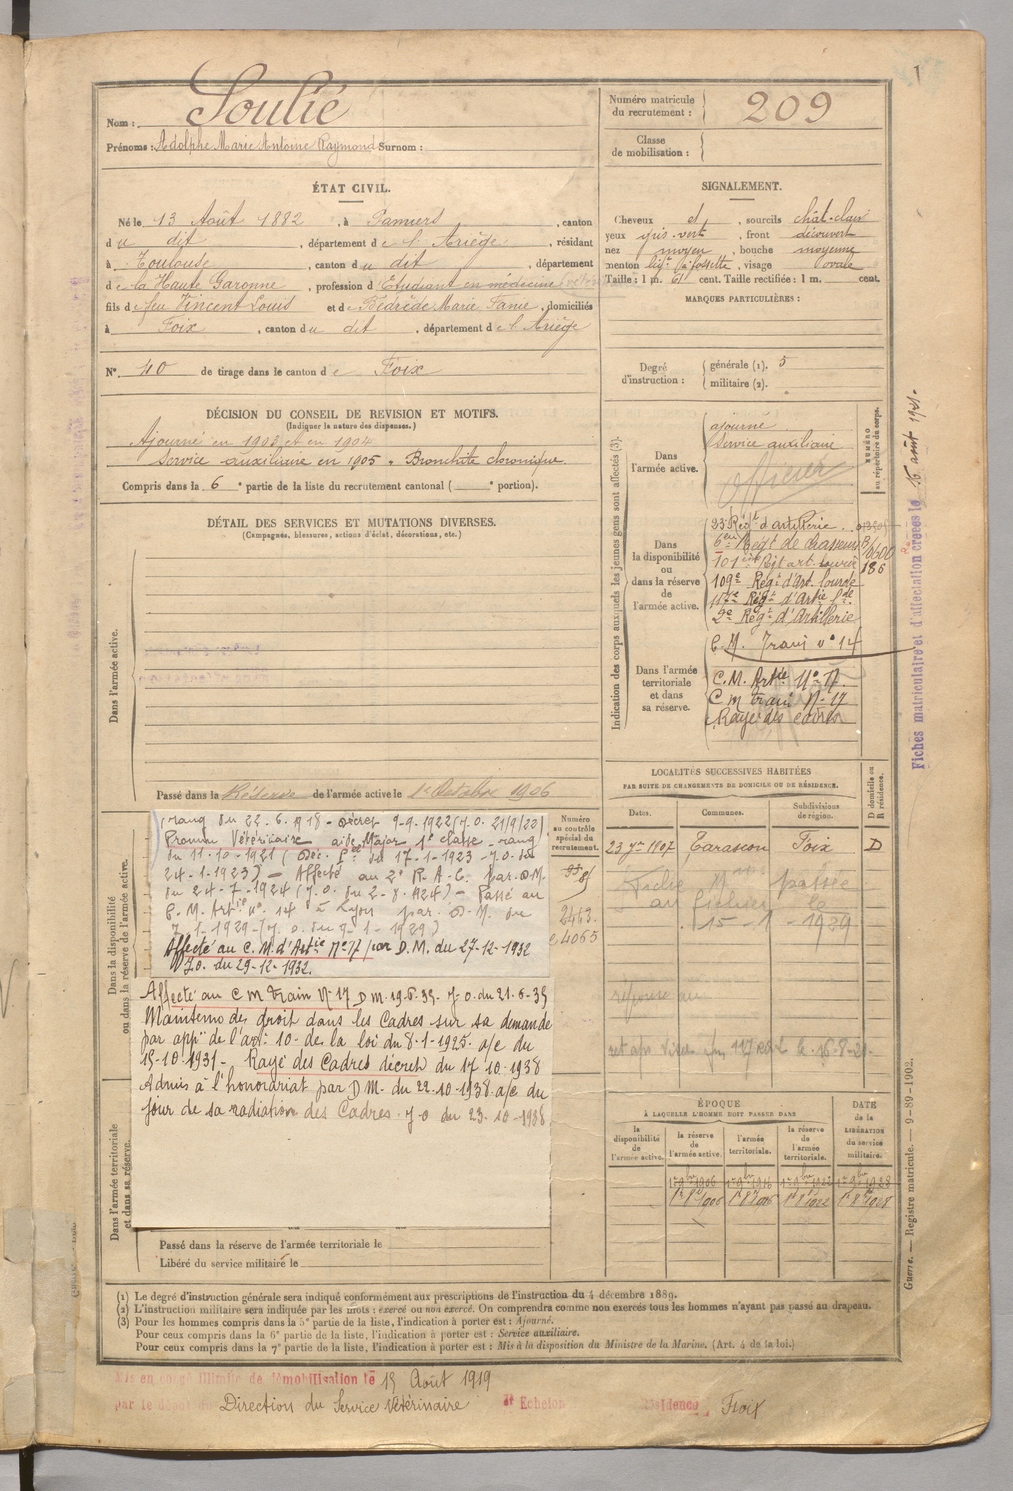 1
Nom : Soulié
Prénoms : Adolphe Marie Antoine Raymond Surnom :
Numéro matricule du recrutement : 209
Classe de mobilisation :
ÉTAT CIVIL.
Né le 13 Août 1882, à Pamiers, canton
du dit, département de l'Ariège, résidant
à Toulouse, canton du dit, département
de la Haute Garonne, profession d'Etudiant en médecine
fils de feu Vincent Louis et de Marie Fanie, domiciliés
à Foix, canton du dit, département de l'Ariège
N° 40 de tirage dans le canton de Foix
SIGNALEMENT.
Cheveux et, sourcils chât-clair
yeux gris-vert, front découvert
nez moyen, bouche moyenne
menton à fossette, visage ovale
Taille : 1 m. 61 cent. Taille rectifiée : 1 m. cent.
MARQUES PARTICULIÈRES :
Degré d'instruction : générale (1). 5
militaire (2).
DÉCISION DU CONSEIL DE REVISION ET MOTIFS.
(Indiquer la nature des dispenses.)
Ajourné en 1903 et en 1904
Service auxiliaire en 1905. Bronchite chronique.
Compris dans la 6e partie de la liste du recrutement cantonal ( e portion).
DÉTAIL DES SERVICES ET MUTATIONS DIVERSES.
(Campagnes, blessures, actions d'éclat, décorations, etc.)
Dans l'armée active.
Passé dans la Réserve de l'armée active le 1er Octobre 1906
Indication des corps auxquels les jeunes gens sont affectés (3).
NUMÉRO au répertoire du corps.
Dans l'armée active.
ajourné
Service auxiliaire
Officier
Dans la disponibilité ou dans la réserve de l'armée active.
33e Régt d'artillerie
6eme Régt de chasseurs
101eme Régt art. lourde
186
109e Régt d'Art. lourde
117e Régt d'Artie Lde
2e Régt d'Artillerie
C.M. Train n° 14
Dans l'armée territoriale et dans sa réserve.
C.M. Artie N° 17.
C m train N° 17
Rayé des cadres
Fiches matriculaire et d'affectation créées le 16 août 1921.
Dans la disponibilité ou dans la réserve de l'armée active.
(rang du 22-6-1918 - Décret 9-9-1922 (J.O. 21/9/22)
Promu Vétérinaire aide Major 1e classe - rang
du 11-10-1921 (Déc. Pelle du 17-1-1923 - J.O. du
24-1-1923) - Affecté au 2e R.A.C. par D.M.
du 24-7-1924 (J.O. du 2-8-1924) - Passé au
C.M. Artie n° 14 à Lyon par D.M. du
7-1-1929 (J.O. du 9-1-1929)
Affecté au C.M. d'Artie N° 17 par D.M. du 27-12-1932
J.O. du 29-12-1932.
Affecté au C M Train N° 17 D M. 19.6.35. J.O. du 21.6.35
Maintenu de droit dans les Cadres sur sa demande
par appon de l'art. 10 de la loi du 8-1-1925. a/c du
15-10-1931 - Rayé des Cadres décret du 17.10.1938
Admis à l'honorariat par D M. du 22.10.1938. a/c du
jour de sa radiation des Cadres. J O du 23-10-1938
Dans l'armée territoriale et dans sa réserve.
Passé dans la réserve de l'armée territoriale le
Libéré du service militaire le
Numéro au contrôle spécial du recrutement.
2463
4065
LOCALITÉS SUCCESSIVES HABITÉES
PAR SUITE DE CHANGEMENTS DE DOMICILE OU DE RÉSIDENCE.
D domicile ou R résidence.
Dates. Communes. Subdivisions de région.
23 7re 1907 Tarascon Foix D
Fiche passée
au fichier le
15-1-1929
ÉPOQUE
À LAQUELLE L'HOMME DOIT PASSER DANS
DATE de la LIBÉRATION du service militaire.
la disponibilité de l'armée active.
la réserve de l'armée active.
l'armée territoriale.
la réserve de l'armée territoriale.
Guerre. — Registre matricule. — 9-89-1902.
(1) Le degré d'instruction générale sera indiqué conformément aux prescriptions de l'instruction du 4 décembre 1889.
(2) L'instruction militaire sera indiquée par les mots : exercé ou non exercé. On comprendra comme non exercés tous les hommes n'ayant pas passé au drapeau.
(3) Pour les hommes compris dans la 5e partie de la liste, l'indication à porter est : Ajourné.
Pour ceux compris dans la 6e partie de la liste, l'indication à porter est : Service auxiliaire.
Pour ceux compris dans la 7e partie de la liste, l'indication à porter est : Mis à la disposition du Ministre de la Marine. (Art. 4 de la loi.)
Mis en congé illimité de démobilisation le 15 Août 1919
par le dépôt du Direction du Service Vétérinaire Echelon Résidence Foix